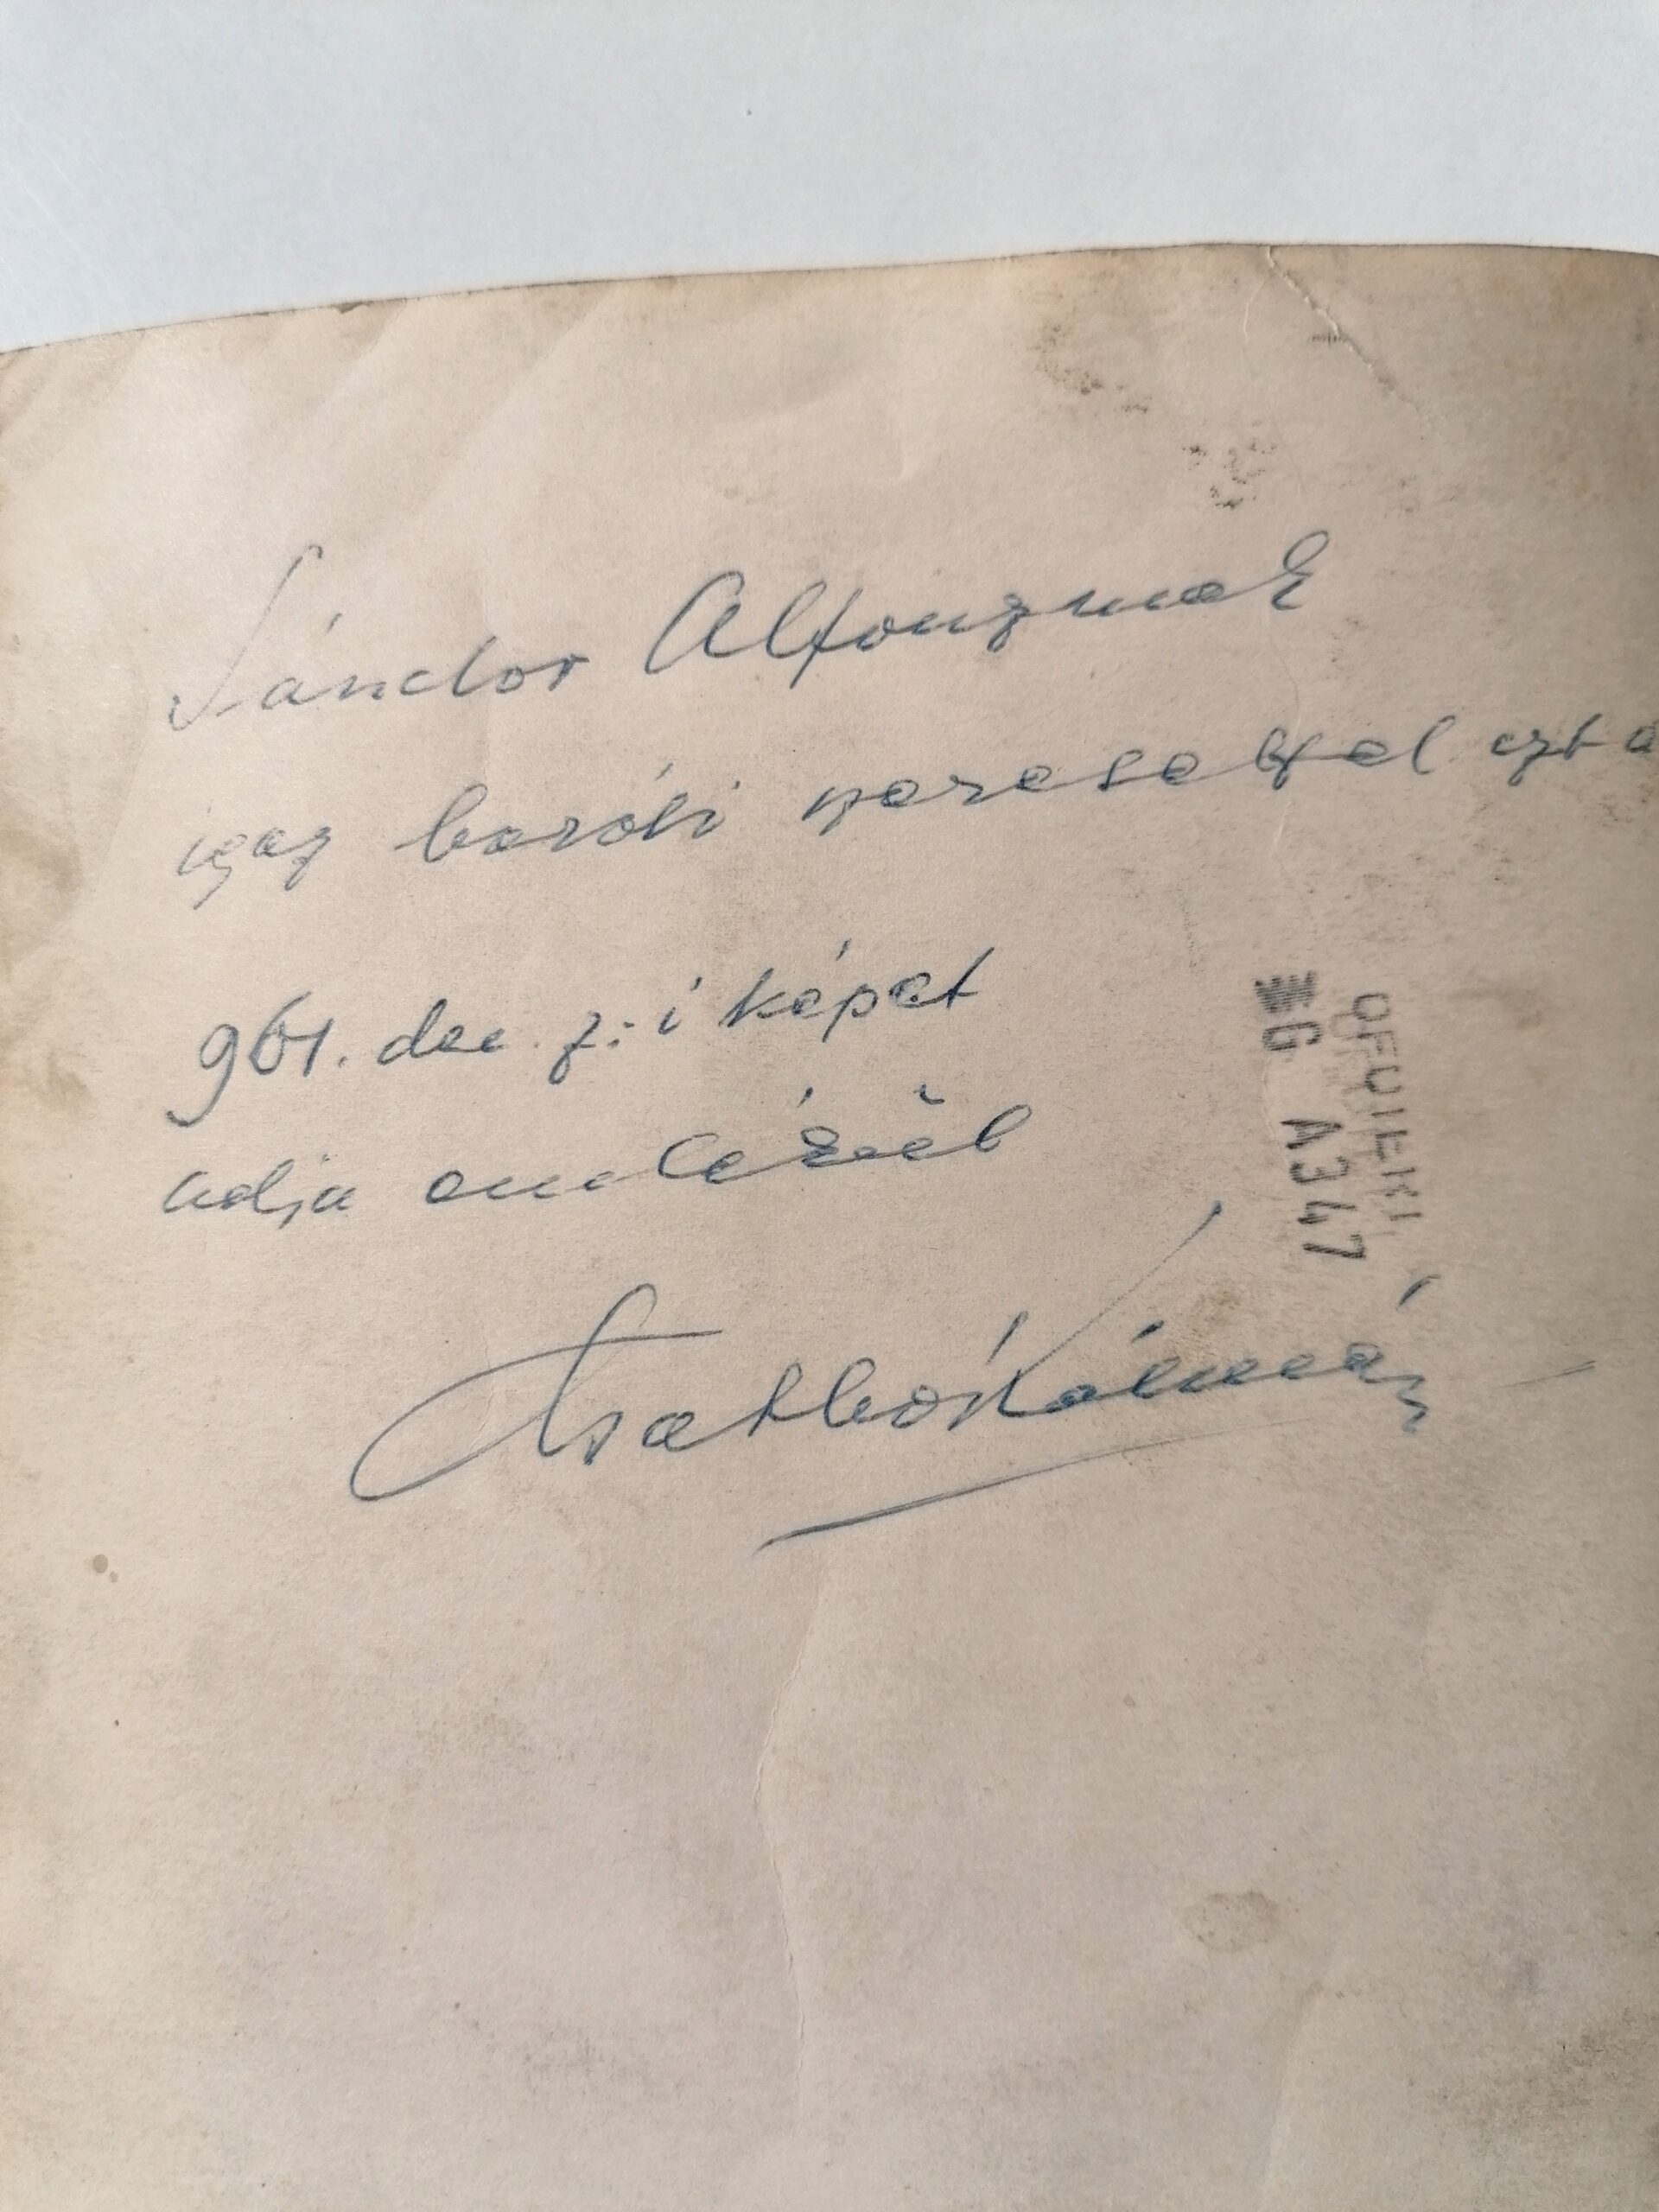 Sándor Alfonznak
igaz baráti szeretettel ezt a
961. dec. 7.-i képet
adja emlékül
Csathó Kálmán
OFOTÉRT
G A347